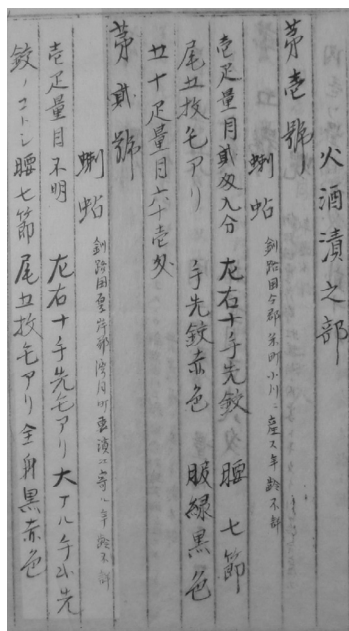 火酒漬之部
第壱號
蝲蛄 釧路国 郡 町小川ニ産ス年齢不詳
壱疋量目貳匁八分 左右十手先鋏 腰七節
尾五枚毛アリ 手先鋏赤色 服緑黒色
五十疋量目六十壱匁
第貳號
蝲蛄 釧路国厚岸郡湾月町 濱ニ寄ル年齢不詳
壱疋量目不明 左右十手先毛アリ 大アル手ハ先
鋏ノコトシ腰七節 尾五枚毛アリ全身黒赤色